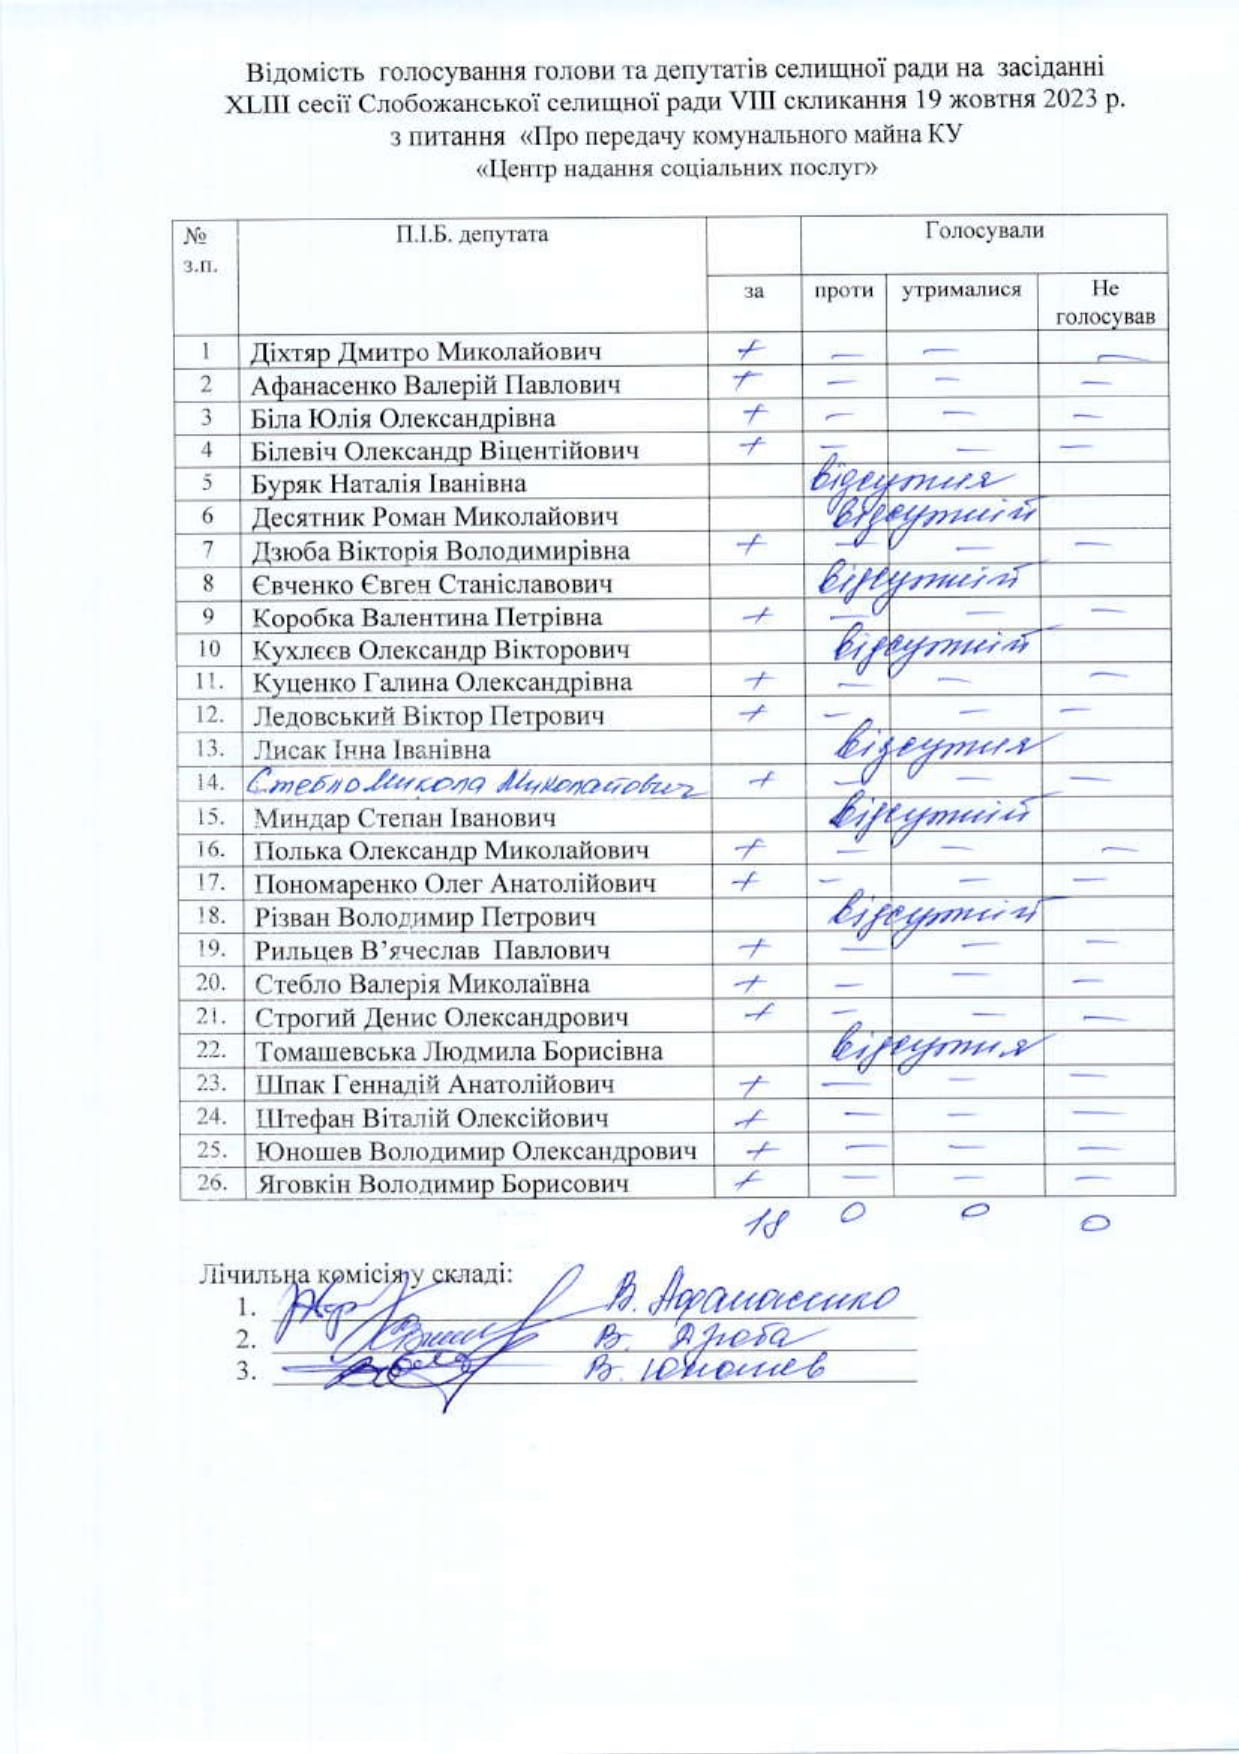 Відомість голосування голови та депутатів селищної ради на засіданні
XLIII сесії Слобожанської селищної ради VIII скликання 19 жовтня 2023 р.
з питання «Про передачу комунального майна КУ
«Центр надання соціальних послуг»
№ з.п. П.І.Б. депутата Голосували
за проти утрималися Не голосував
1 Діхтяр Дмитро Миколайович + — — —
2 Афанасенко Валерій Павлович + — — —
3 Біла Юлія Олександрівна + — — —
4 Білевіч Олександр Віцентійович + — — —
5 Буряк Наталія Іванівна відсутня
6 Десятник Роман Миколайович відсутній
7 Дзюба Вікторія Володимирівна + — — —
8 Євченко Євген Станіславович відсутній
9 Коробка Валентина Петрівна + — — —
10 Кухлєєв Олександр Вікторович відсутній
11. Куценко Галина Олександрівна + — — —
12. Ледовський Віктор Петрович + — — —
13. Лисак Інна Іванівна відсутня
14. Стебло Микола Миколайович + — — —
15. Миндар Степан Іванович відсутній
16. Полька Олександр Миколайович + — — —
17. Пономаренко Олег Анатолійович + — — —
18. Різван Володимир Петрович відсутній
19. Рильцев В’ячеслав Павлович + — — —
20. Стебло Валерія Миколаївна + — — —
21. Строгий Денис Олександрович + — — —
22. Томашевська Людмила Борисівна відсутня
23. Шпак Геннадій Анатолійович + — — —
24. Штефан Віталій Олексійович + — — —
25. Юношев Володимир Олександрович + — — —
26. Яговкін Володимир Борисович + — — —
18 0 0 0
Лічильна комісія у складі:
1. В. Афанасенко
2. В. Дзюба
3. В. Юношев